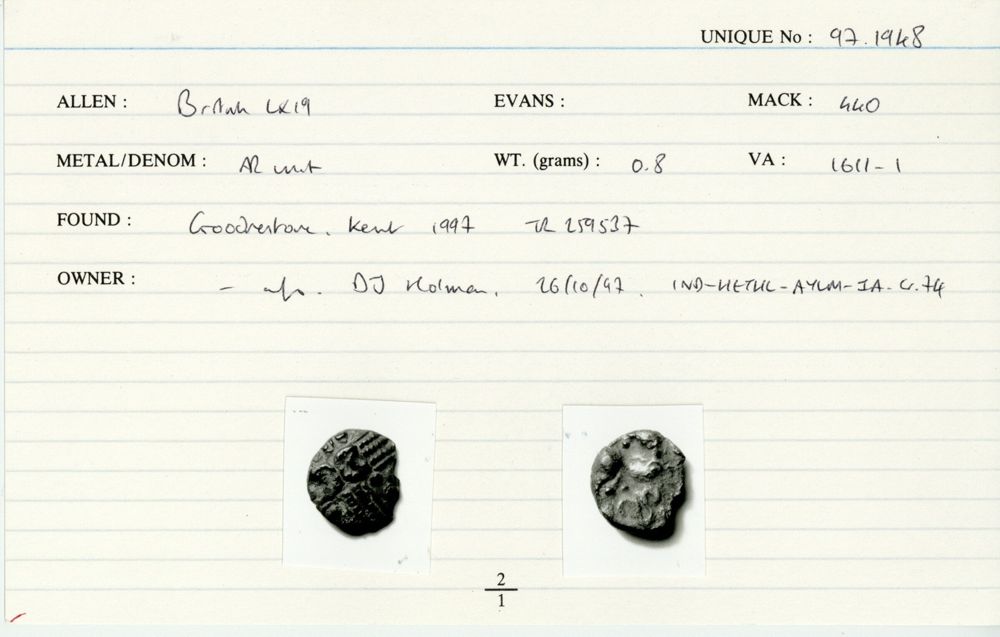 UNIQUE No : 97.1948
ALLEN : British LX19 EVANS : MACK : 440
METAL/DENOM : AR unit WT. (grams) : 0.8 VA : 1611-1
FOUND : Goodnestone, Kent 1997 TR 259537
OWNER : - info. DJ Holman, 26/10/97.
2
1